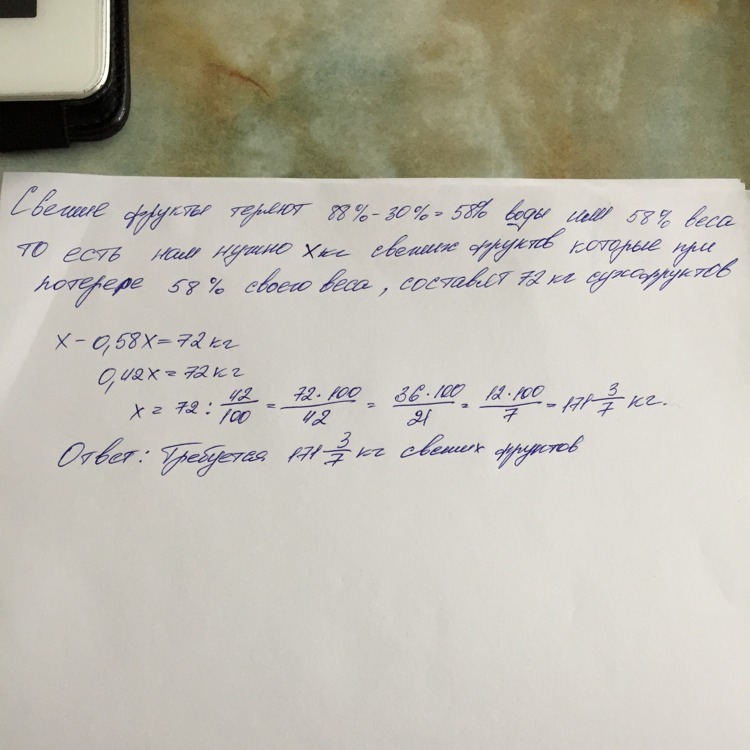 Свежие фрукты теряют 88% - 30% = 58% воды или 58% веса
то есть нам нужно x кг свежих фруктов которые при
потере 58% своего веса, составят 72 кг сухофруктов
x - 0,58x = 72 кг
0,42x = 72 кг
x = 72 : 42/100 = 72·100/42 = 36·100/21 = 12·100/7 = 171 3/7 кг.
Ответ: Требуется 171 3/7 кг свежих фруктов